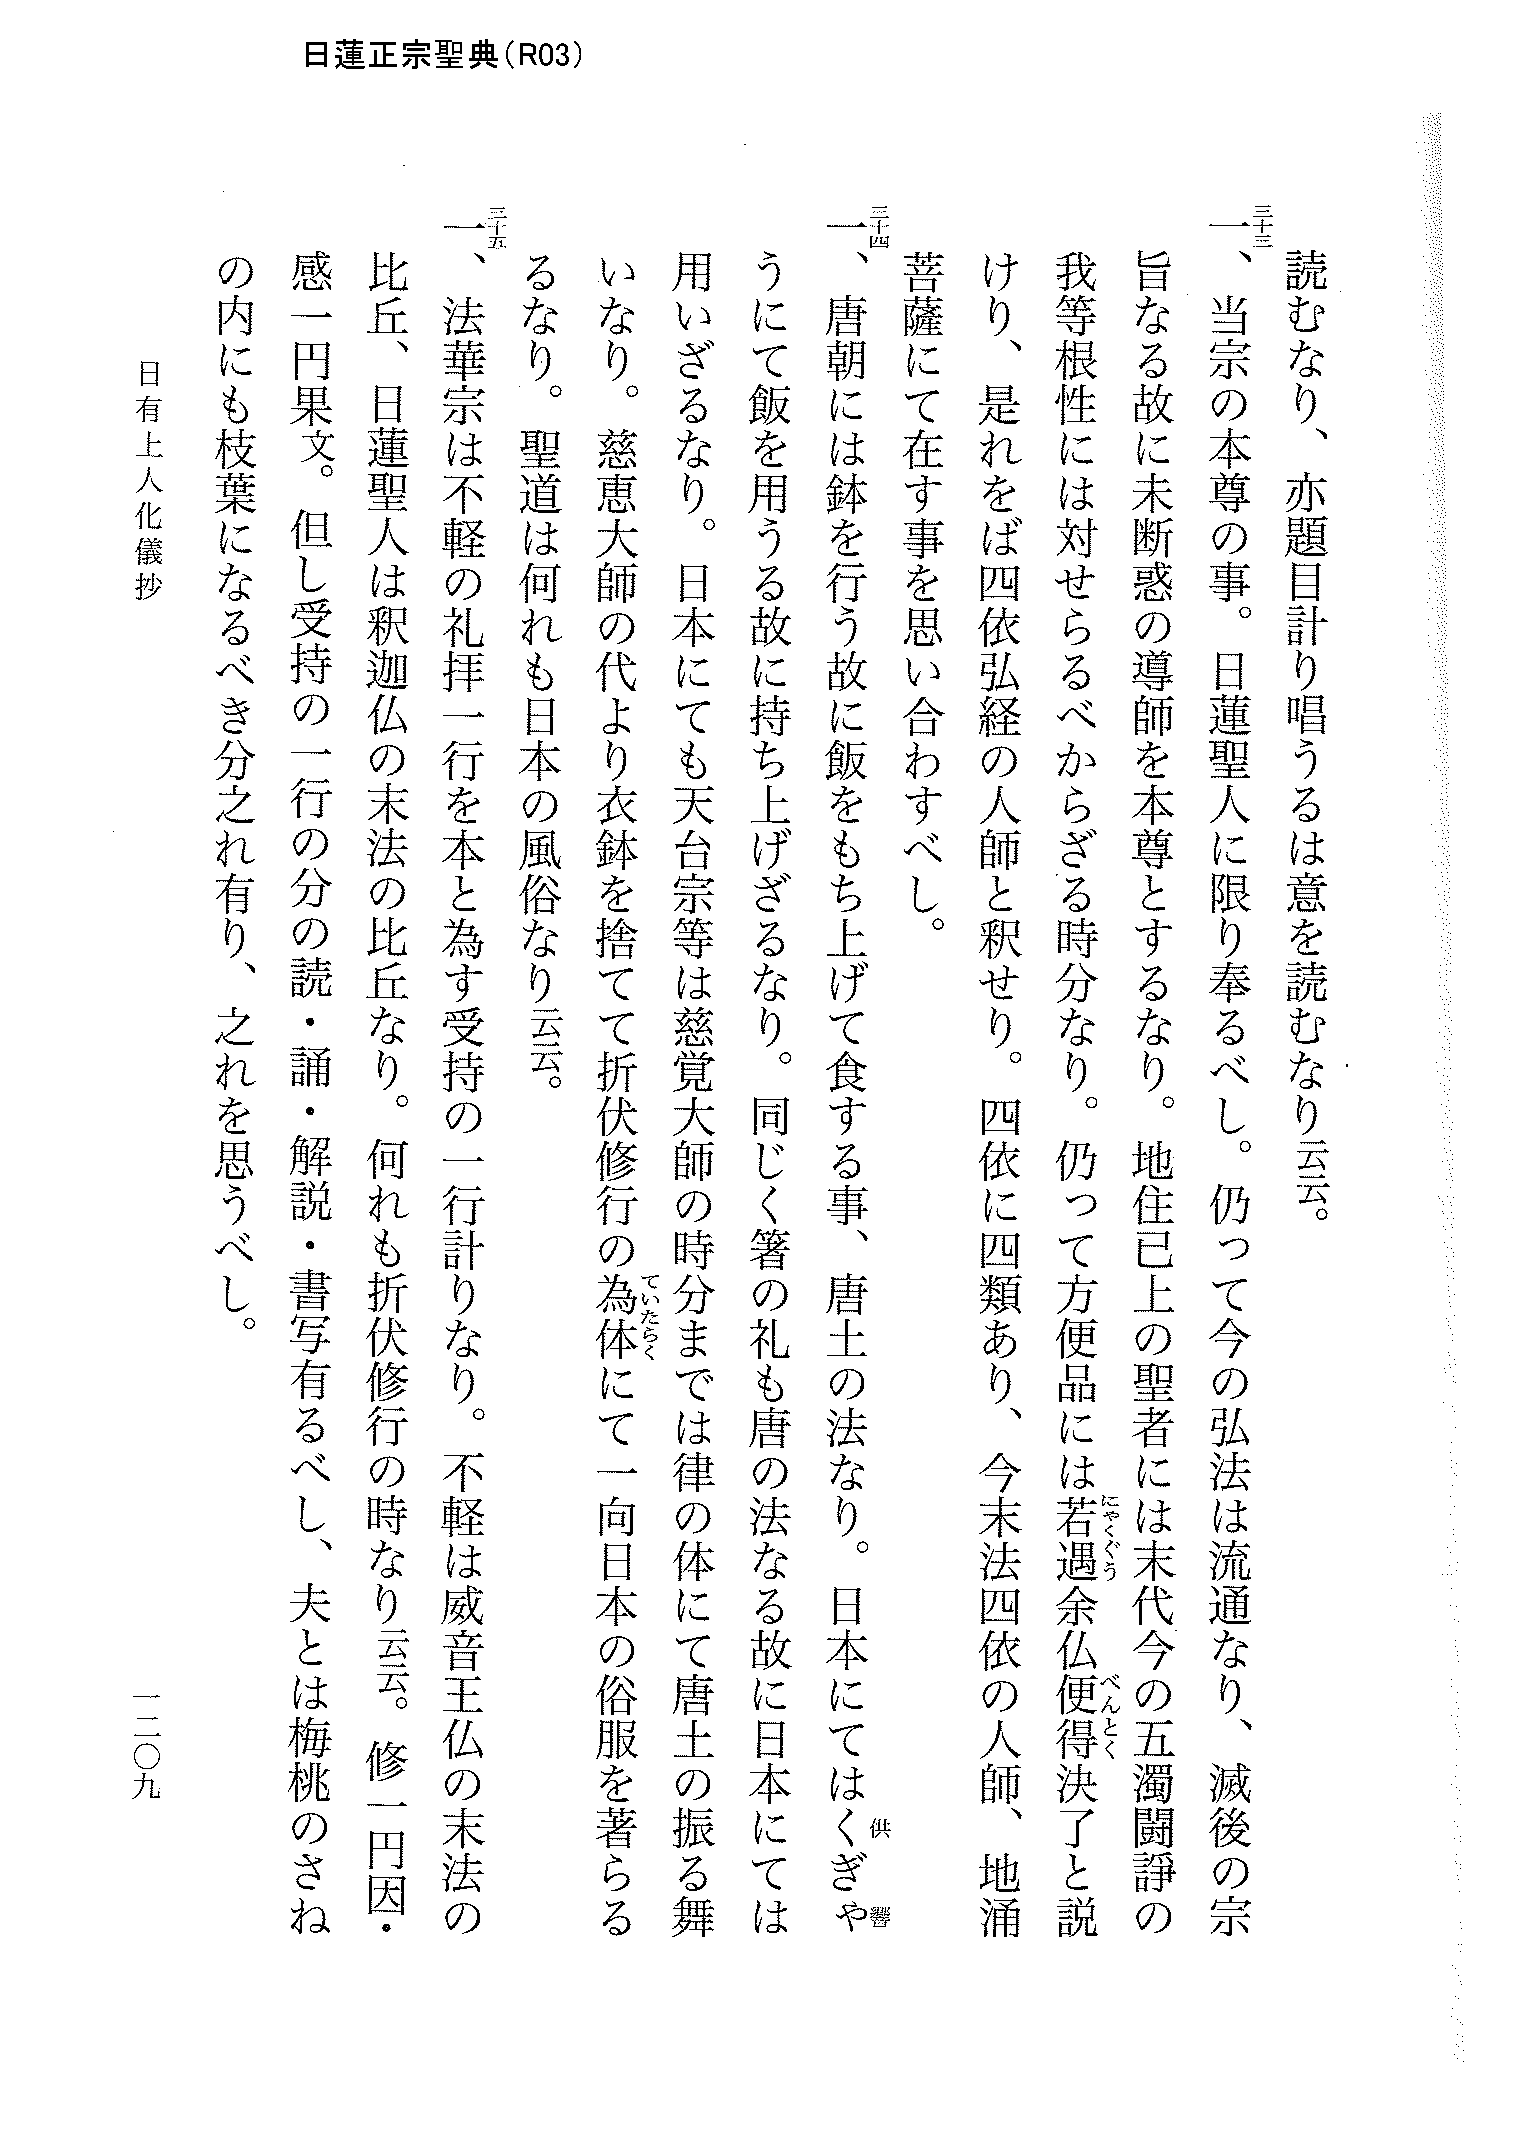 日蓮正宗聖典（R03）
読むなり、亦題目計り唱うるは意を読むなり云云。
三十三
一、当宗の本尊の事。日蓮聖人に限り奉るべし。仍って今の弘法は流通なり、滅後の宗
旨なる故に未断惑の導師を本尊とするなり。地住已上の聖者には末代今の五濁闘諍の
我等根性には対せらるべからざる時分なり。仍って方便品には若遇余仏便得決了と説
にゃくぐう
べんとく
けり、是れをば四依弘経の人師と釈せり。四依に四類あり、今末法四依の人師、地涌
菩薩にて在す事を思い合わすべし。
三十四
一、唐朝には鉢を行う故に飯をもち上げて食する事、唐土の法なり。日本にてはくぎゃ
供
響
うにて飯を用うる故に持ち上げざるなり。同じく箸の礼も唐の法なる故に日本にては
用いざるなり。日本にても天台宗等は慈覚大師の時分までは律の体にて唐土の振る舞
いなり。慈恵大師の代より衣鉢を捨てて折伏修行の為体にて一向日本の俗服を著らる
ていたらく
るなり。聖道は何れも日本の風俗なり云云。
三十五
一、法華宗は不軽の礼拝一行を本と為す受持の一行計りなり。不軽は威音王仏の末法の
比丘、日蓮聖人は釈迦仏の末法の比丘なり。何れも折伏修行の時なり云云。修一円因・
感一円果文。但し受持の一行の分の読・誦・解説・書写有るべし、夫とは梅桃のさね
の内にも枝葉になるべき分之れ有り、之れを思うべし。
日有上人化儀抄
一二〇九